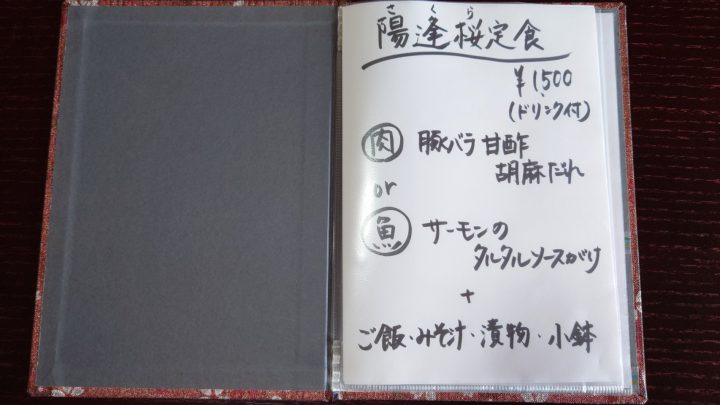 さくら
陽逢桜定食
¥1,500
(ドリンク付)
肉 豚バラ甘酢
胡麻だれ
or
魚 サーモンの
タルタルソースがけ
+
ご飯・みそ汁・漬物・小鉢